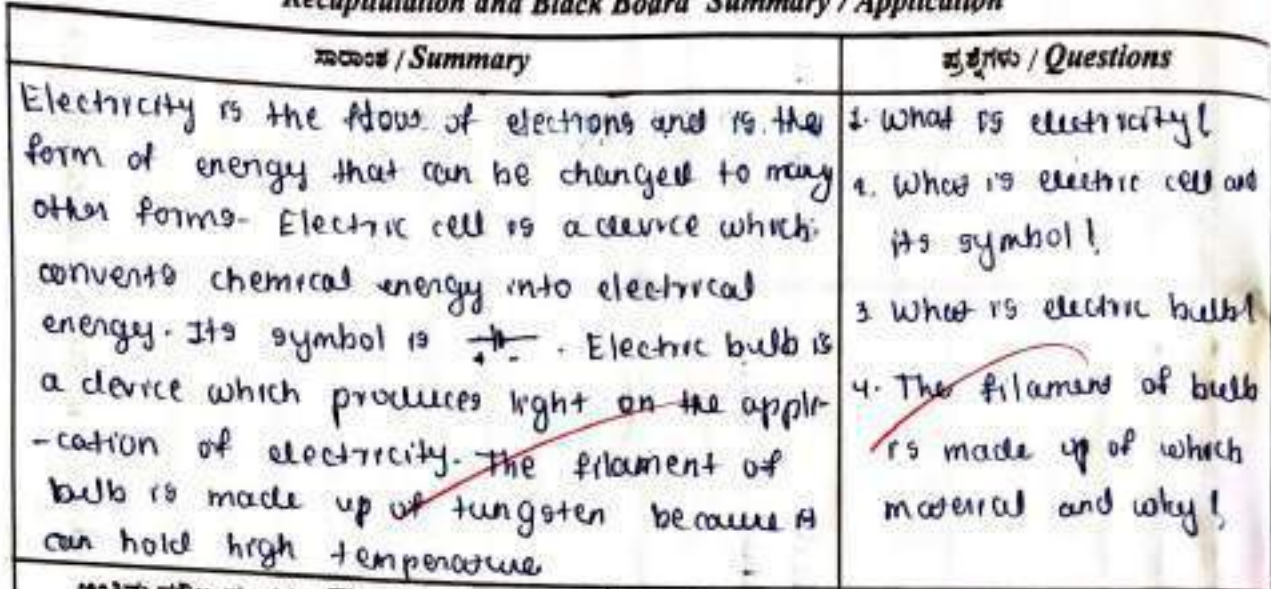 Recapitulation and Black Board Summary / Application
ಸಾರಾಂಶ / Summary
Electricity is the flow of electrons and is the
form of energy that can be changed to many
other forms. Electric cell is a device which
converts chemical energy into electrical
energy. Its symbol is . Electric bulb is
a device which produces light on the appli-
-cation of electricity. The filament of
bulb is made up of tungsten because it
can hold high temperature
ಪ್ರಶ್ನೆಗಳು / Questions
1. What is electricity?
2. What is electric cell and
its symbol?
3 What is electric bulb?
4. The filament of bulb
is made up of which
material and why?